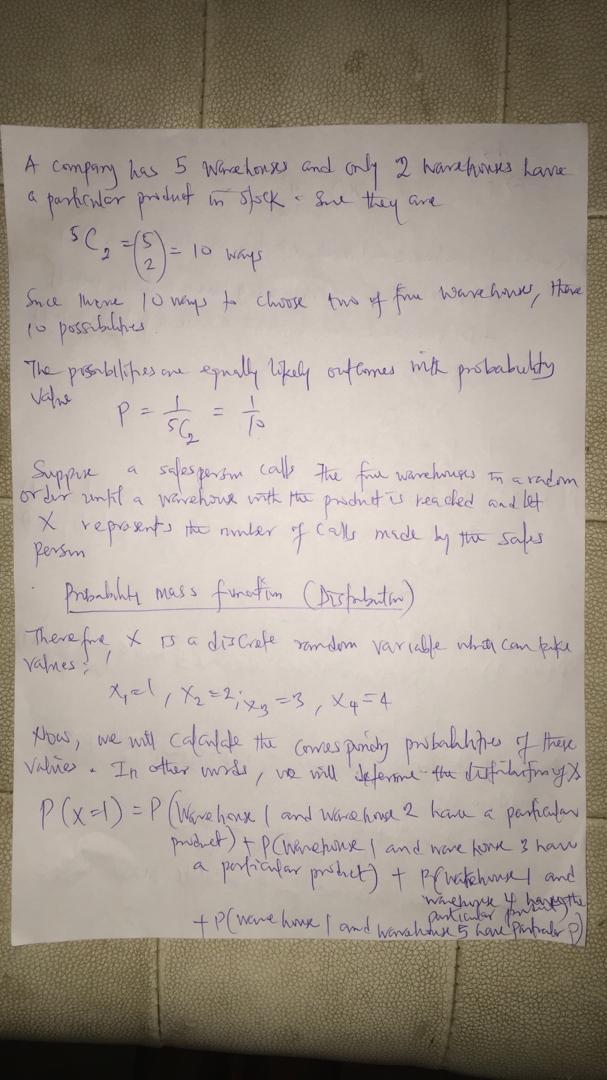 A company has 5 warehouses and only 2 warehouses have
a particular product in stock. Since they are
5C2 = (5 2) = 10 ways
Since there 10 ways to choose two of five warehouses, there
10 possibilities
The possibilities are equally likely outcomes with probability
value
P = 1/5C2 = 1/10
Suppose a salesperson calls the five warehouses in a radom
order until a warehouse with the product is reached and let
X represents the number of calls made by the sales
person
Probability mass function (Distribution)
Therefore X is a discrete random variable which can take
values:
x1=1, x2=2; x3=3, x4=4
Now, we will calculate the corresponding probabilities of these
values. In other words, we will determine the distribution of X
P(x=1) = P(Warehouse 1 and warehouse 2 have a particular
product) + P(warehouse 1 and warehouse 3 have
a particular product) + P(warehouse 1 and
warehouse 4 have the
particular product)
+ P(warehouse 1 and warehouse 5 have particular p)